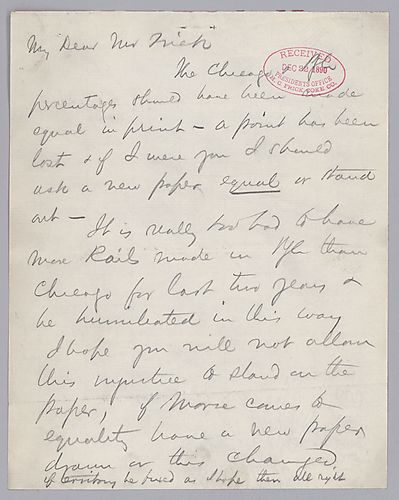 My Dear Mr Frick
RECEIVED
DEC 1890
PRESIDENTS OFFICE
H. C. FRICK COKE CO.
The Chicago &
percentages should have been made
equal in print – a point has been
lost & if I were you I should
ask a new paper equal or stand
out –
It is really too bad to have
more Rails made in Pgh than
Chicago for last two years &
be humiliated in this way
I hope you will not allow
this injustice to stand on the
paper, if Morse comes to
equality have a new paper
drawn or this changed
if be fixed as I hope then all right